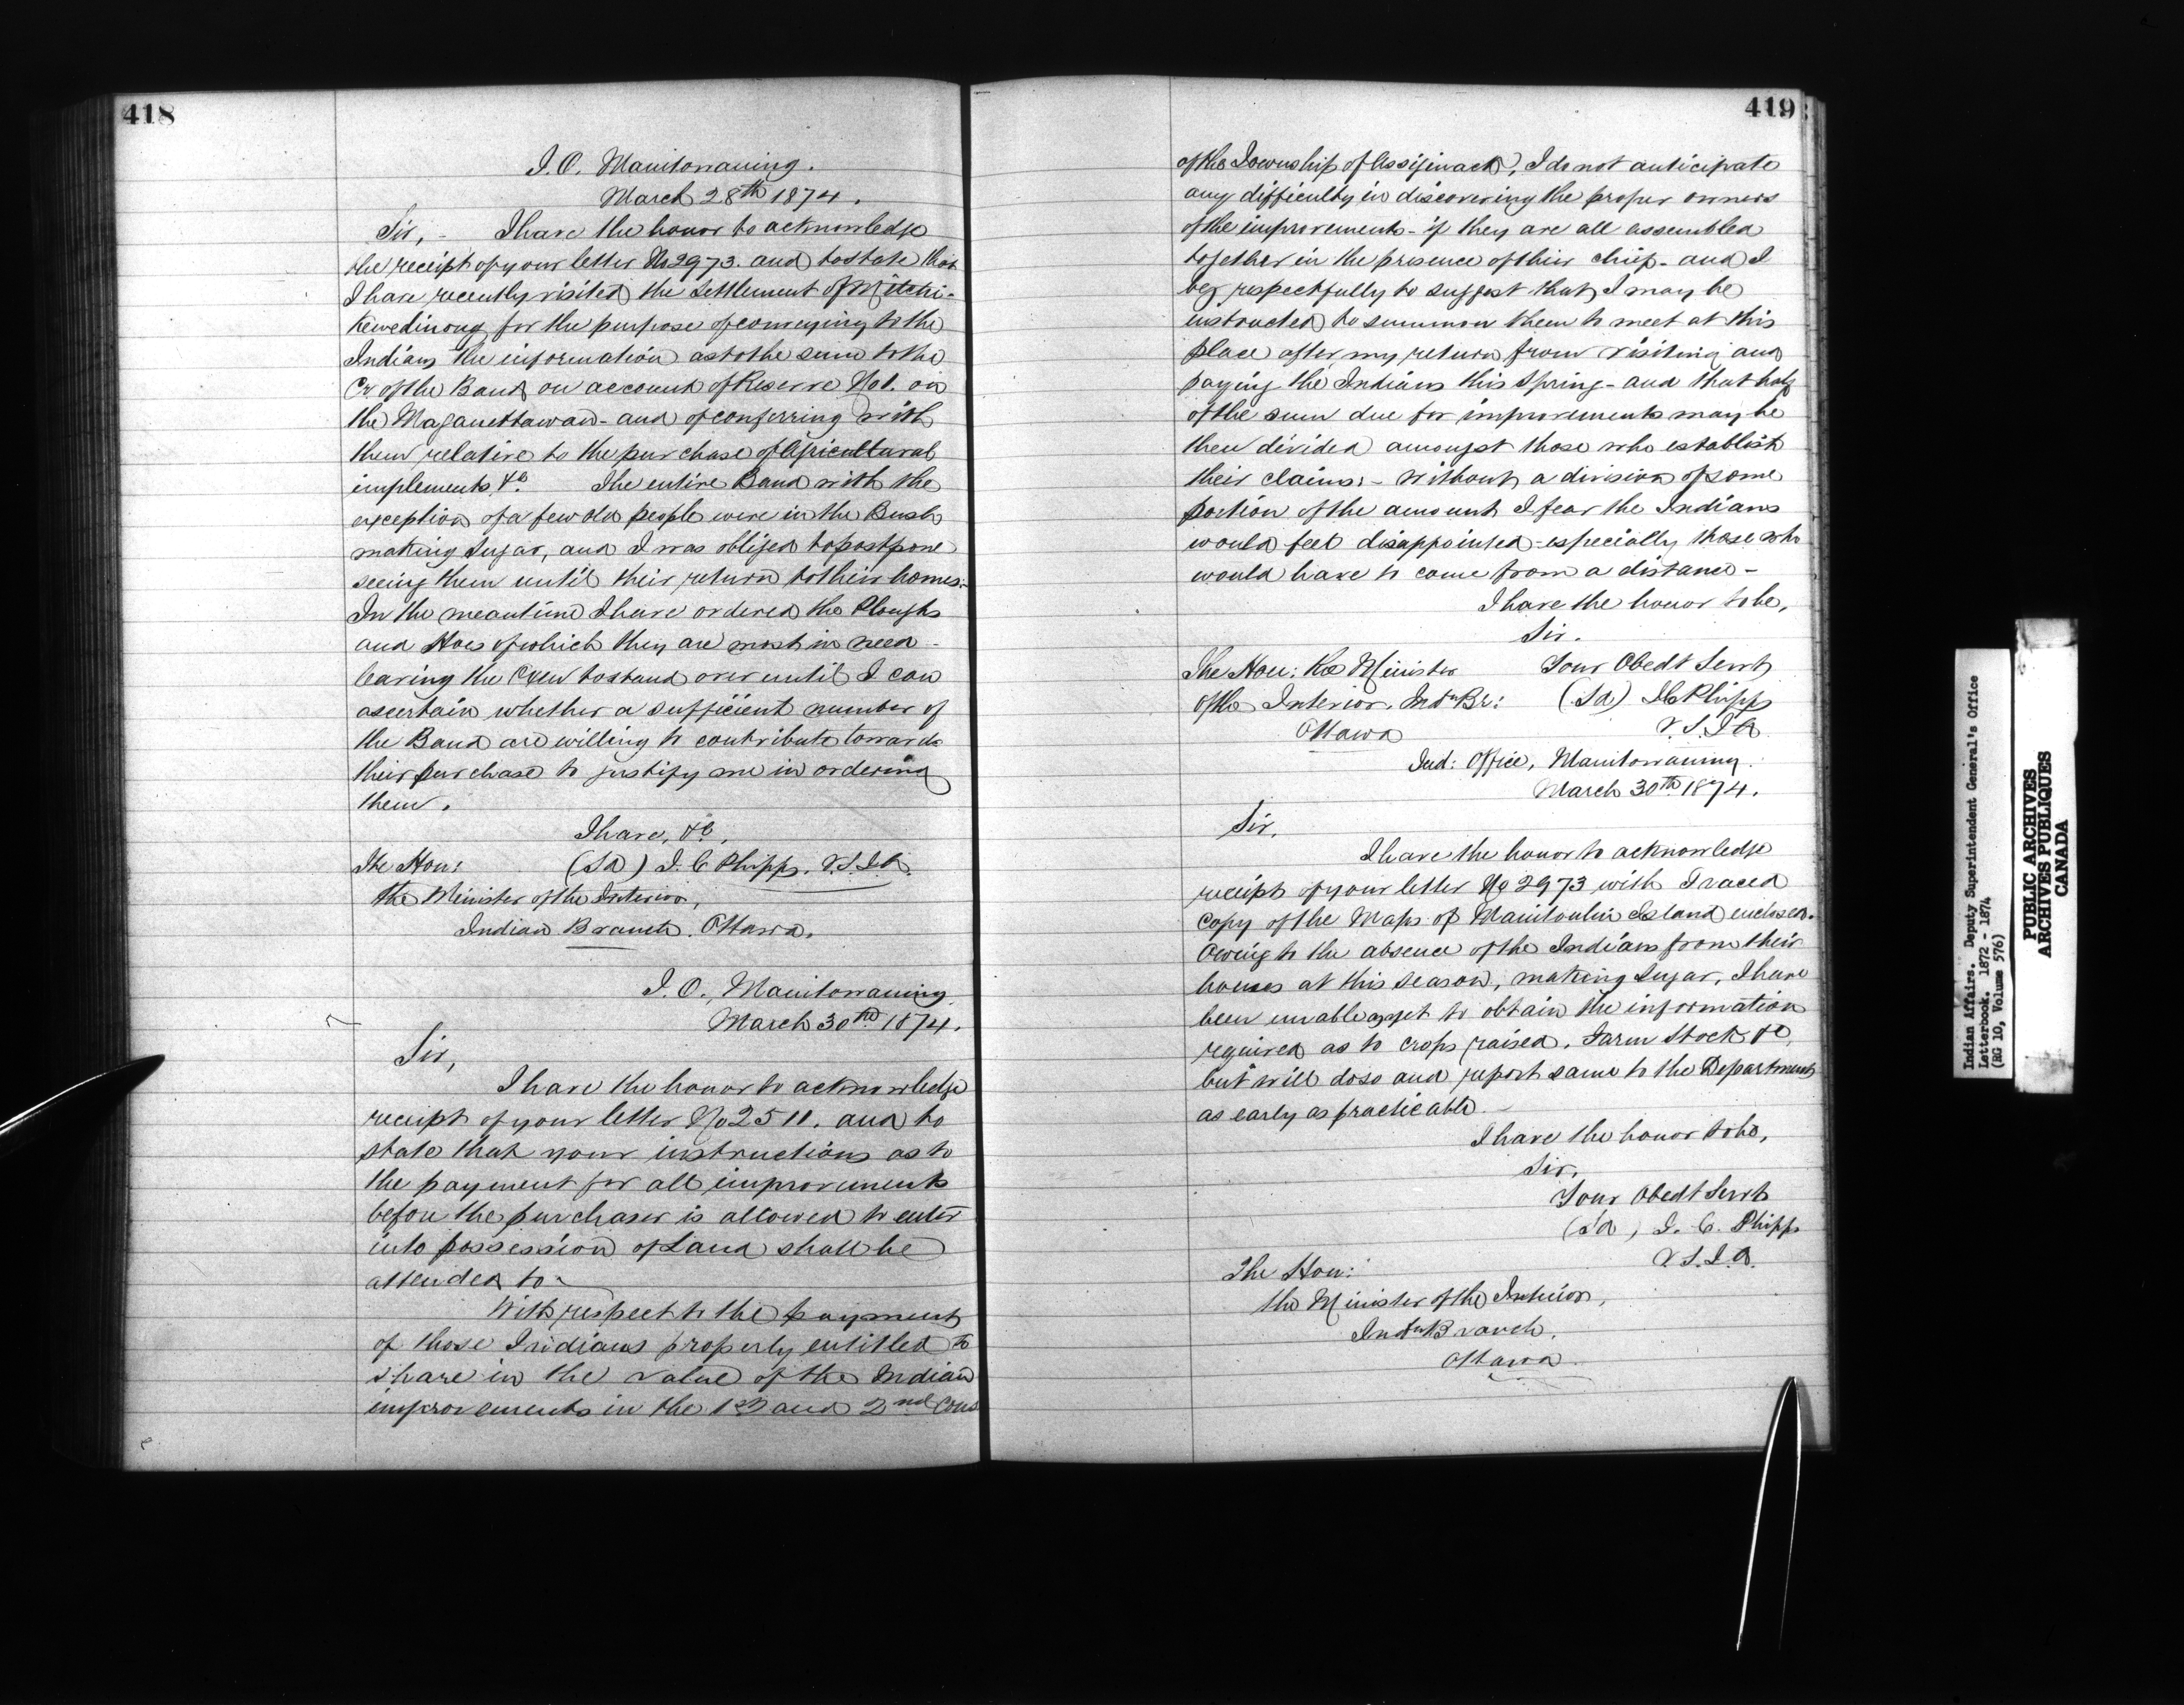 418
I. O. Manitowaning.
March 28th 1874.
Sir, - I have the honor to acknowledge
the receipt of your letter No 2973. and to state that
I have recently visited the settlement of Mitchi-
kewedinong for the purpose of conveying to the
Indians the information as to the sum to the
Cr of the Band on account of Reserve No 1. on
the Maganettawan - and of conferring with
them relative to the purchase of Agricultural
implements &c. The entire Band with the
exception of a few old people were in the Bush
making Sugar, and I was obliged to postpone
seeing them until their return to their homes:-
In the meantime I have ordered the Ploughs
and Hoes of which they are most in need -
leaving the Oxen to stand over until I can
ascertain whether a sufficient number of
the Band are willing to contribute towards
their purchase to justify me in ordering
them.
I have, &c,
The Hon: (Sd) J. C Phipps. V.S.I.A.
the Minister of the Interior,
Indian Branch. Ottawa.
I. O., Manitowaning.
March 30th 1874.
Sir,
I have the honor to acknowledge
receipt of your letter No 2511. and to
state that your instructions as to
the payment for all improvements
before the purchaser is allowed to enter
into possession of Land shall be
attended to -
With respect to the payment
of those Indians properly entitled to
share in the value of the Indian
improvements in the 1st and 2nd Cons
419
of the Township of Assiginack, I do not anticipate
any difficulty in discovering the proper owners
of the improvements - if they are all assembled
together in the presence of their chief - and I
beg respectfully to suggest that I may be
instructed to summon them to meet at this
place after my return from visiting and
paying the Indians this Spring - and that half
of the sum due for improvements may be
then divided amongst those who establish
their claims: - Without a division of some
portion of the amount I fear the Indians
would feel disappointed - especially those who
would have to come from a distance -
I have the honor to be,
Sir.
The Hon: the Minister Your Obedt Servt
of the Interior. Indn Br: (Sd) J C Phipps
Ottawa V.S.I.A.
Ind: Office, Manitowaning.
March 30th 1874.
Sir,
I have the honor to acknowledge
receipt of your letter No 2973 with Traced
copy of the Maps of Manitoulin Island enclosed.
Owing to the absence of the Indians from their
homes at this season, making Sugar, I have
been unable as yet to obtain the information
required as to crops raised. Farm Stock &c,
but will do so and report same to the Department
as early as practicable. -
I have the honor to be,
Sir,
Your Obedt Servt
(Sd) J. C. Phipps
V.S.I.A.
The Hon:
the Minister of the Interior,
Indn Branch.
Ottawa.
Indian Affairs. Deputy Superintendent General's Office
Letterbook. 1872 - 1874
(RG 10, Volume 576)
PUBLIC ARCHIVES
ARCHIVES PUBLIQUES
CANADA